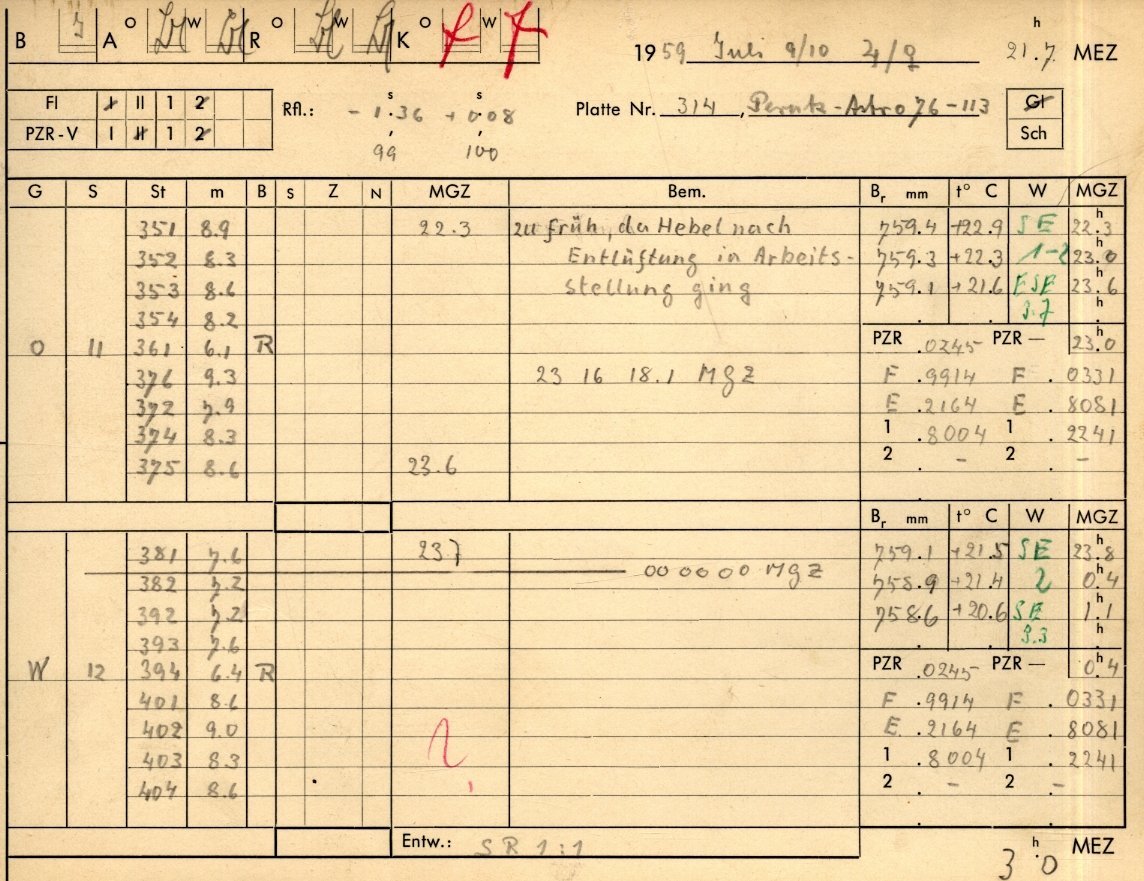 B A O W R O W K O W
1959 Juli 9/10 21.7 h MEZ
Fl I II 1 2
PZR-V I II 1 2
Rfl.: - 1.36 s + 0.08 s
99 100
Platte Nr. 314, Perutz-Astro 76-113
Gl
Sch
G S St m B S Z N MGZ Bem. Br mm t° C W MGZ
351 8.9 22.3 zu früh, da Hebel nach 759.4 +22.9 SE 22.3 h
352 8.3 Entlüftung in Arbeits- 759.3 +22.3 1-2 23.0 h
353 8.6 stellung ging 759.1 +21.6 ESE 23.6 h
354 8.2 3.7 h
O 11 361 6.1 R PZR .0245 PZR — 23.0 h
376 9.3 23 16 18.1 MGZ F .9914 F . 0331
372 7.9 E .2164 E . 8081
374 8.3 1 .8004 1 . 2241
375 8.6 23.6 2 . – 2 . –
Br mm t° C W MGZ
381 7.6 23.7 759.1 +21.5 SE 23.8 h
382 7.2 00 00 00 MGZ 758.9 +21.4 2 0.4 h
392 7.2 758.6 +20.6 SE 1.1 h
393 7.6 3.3 h
W 12 394 6.4 R PZR .0245 PZR — 0.4 h
401 8.6 F .9914 F . 0331
402 9.0 E .2164 E . 8081
403 8.3 1 .8004 1 . 2241
404 8.6 2 . – 2 . –
Entw.: SR 1:1 3.0 h MEZ